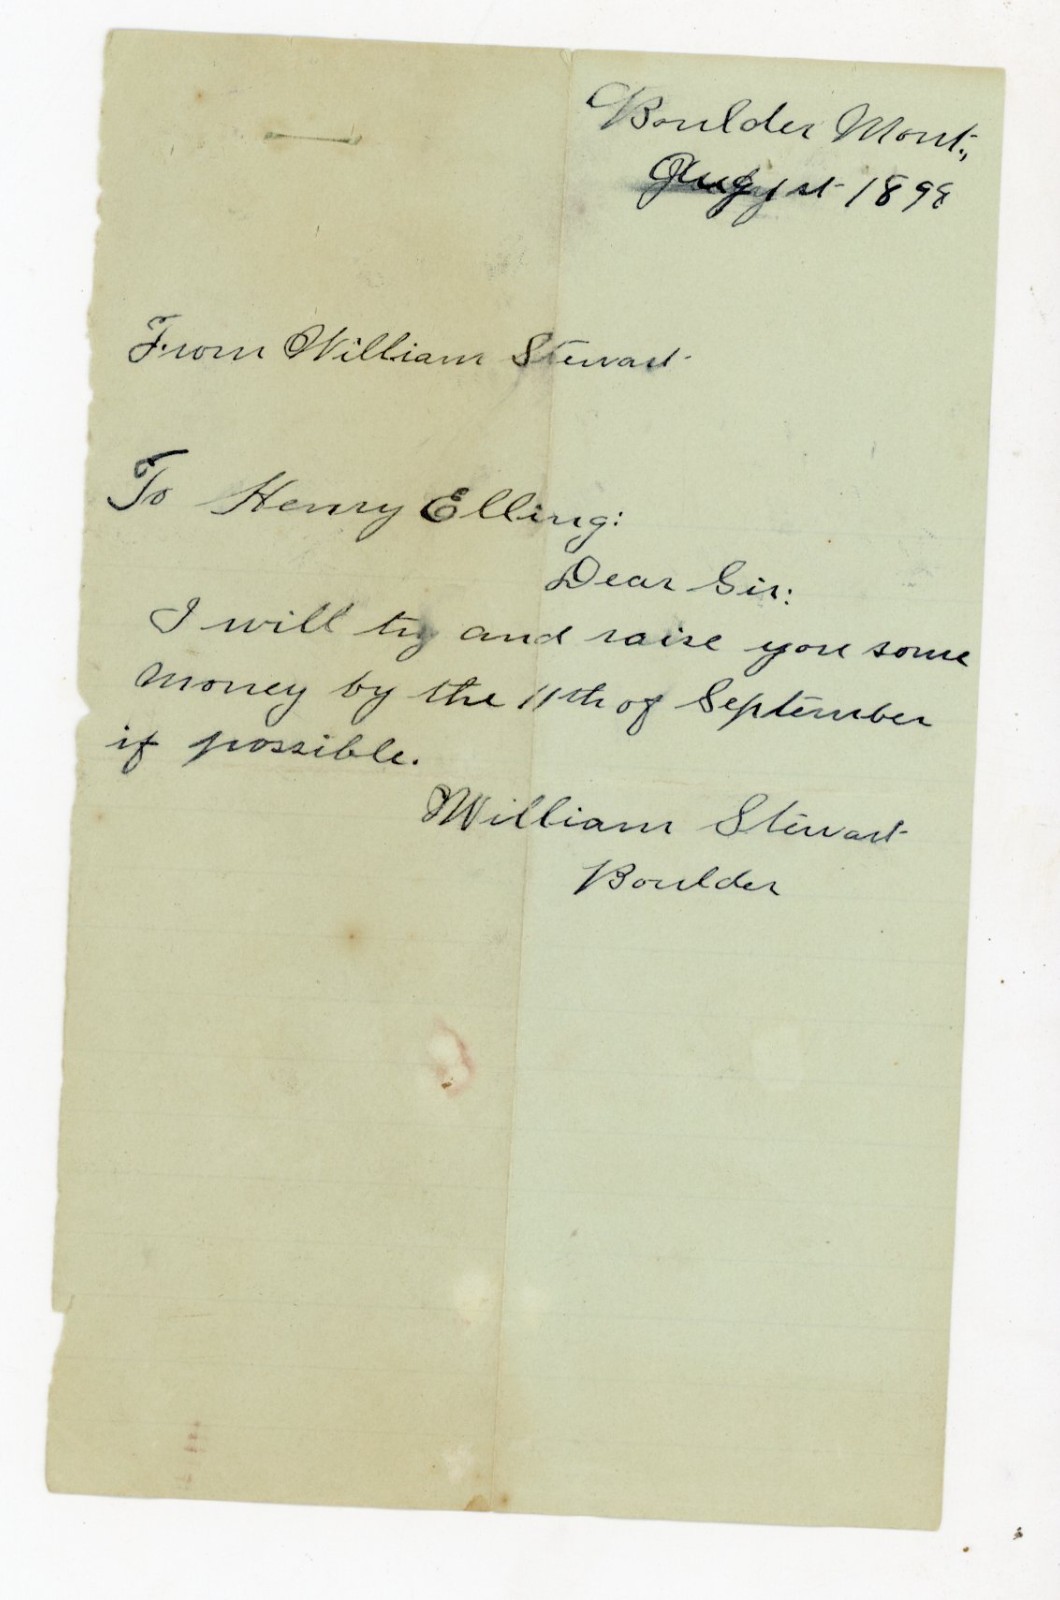 Boulder Mont.,
1898
From William Stewart
To Henry Elling:
Dear Sir:
I will try and raise you some
money by the 11th of September
if possible.
William Stewart
Boulder